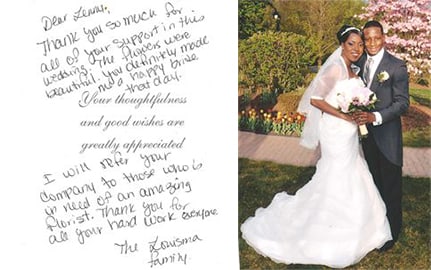 Dear Lenny,
Thank you so much for
all of your support in this
wedding. The flowers were
beautiful. You definitely made
me a happy bride
that day.
Your thoughtfulness
and good wishes are
greatly appreciated
I will refer your
company to those who is
in need of an amazing
florist. Thank you for
all your hard work everyone.
The Louisma
family.